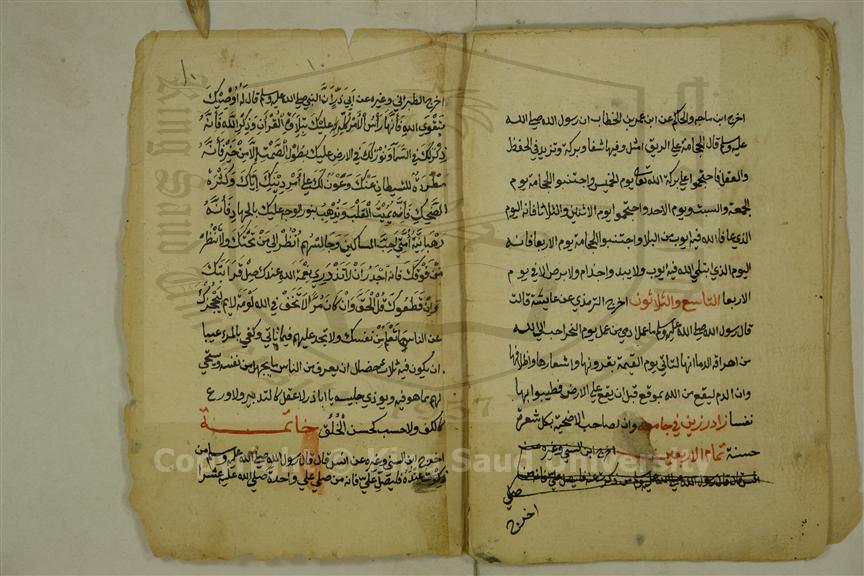 اخرج ابن ماجه والحاكم عن ابن عمر بن الخطاب ان رسول الله صلى الله
عليه وسلم قال الحجامة على الريق امثل وفيها شفا وبركة وتزيد في الحفظ
والعقل فاحتجموا على بركة الله تعالى يوم الخميس واجتنبوا الحجامة يوم
الجمعة والسبت ويوم الاحد واحتجموا يوم الاثنين والثلاثا فانه اليوم
الذي عافا الله فيه ايوب من البلا واجتنبوا الحجامة يوم الاربعا فانه
اليوم الذي ابتلي الله فيه ايوب ولا يبد واجذام ولا برص الا في يوم
الاربعا التاسع والثلاثون اخرج الترمذي عن عايشة قالت
قال رسول الله صلى الله عليه وسلم ما عمل ادمي من عمل يوم النحر احب الى الله
من اهراق الدم انها لتاتي يوم القيمة بقرونها واشعارها واظلافها
وان الدم ليقع من الله بموقع قبل ان يقع على الارض فطيبوا بها
نفسا زاد رزين في جامعه وان لصاحب الاضحية بكل شعرة
حسنة تمام الاربعين اخرج ابن السني وغيره عن
انس قال قال رسول الله صلى الله عليه وسلم من ذكرت عنده فليصل علي فانه من
صلى
اخرج
١٠
اخرج الطبراني وغيره عن ابي ذر ان النبي صلى الله عليه وسلم قال له اوصيك
بتقوى الله فانها رأس الأمر كله عليك بتلاوة القرآن وذكر الله فانه
ذكر لك في السما ونور لك في الارض عليك بطول الصمت الا من خير فانه
مطردة للشيطان عنك وعون لك على امر دينك اياك وكثرة
الضحك فانه يميت القلب ويذهب بنور الوجه عليك بالجهاد فانه
رهبانية أمتي احب المساكين وجالسهم انظر الى من تحتك ولا تنظر
من فوقك فانه اجدر ان لا تزدري نعمة الله عندك صل قرابتك
وان قطعوك قل الحق وان كان مرا لا تخف في الله لومة لايم ليحجزك
عن الناس ما تعلم من نفسك ولا تجد عليهم فيما تاتي وكفى بالمرء عيبا
ان يكون فيه ثلاث خصال ان يعرف من الناس ما يجهل من نفسه ويستحي
لهم مما هو فيه ويوذي جليسه يا ابا ذر لا عقل كالتدبير ولا ورع
كالكف ولا حسب كحسن الخلق خاتمة
اخرج ابن السني وغيره عن انس قال قال رسول الله صلى الله عليه وسلم من
ذكرت عنده فليصل علي فانه من صلى علي واحدة صلى الله عليه عشرا
Copyright © King Saud University
King Saud University
1957